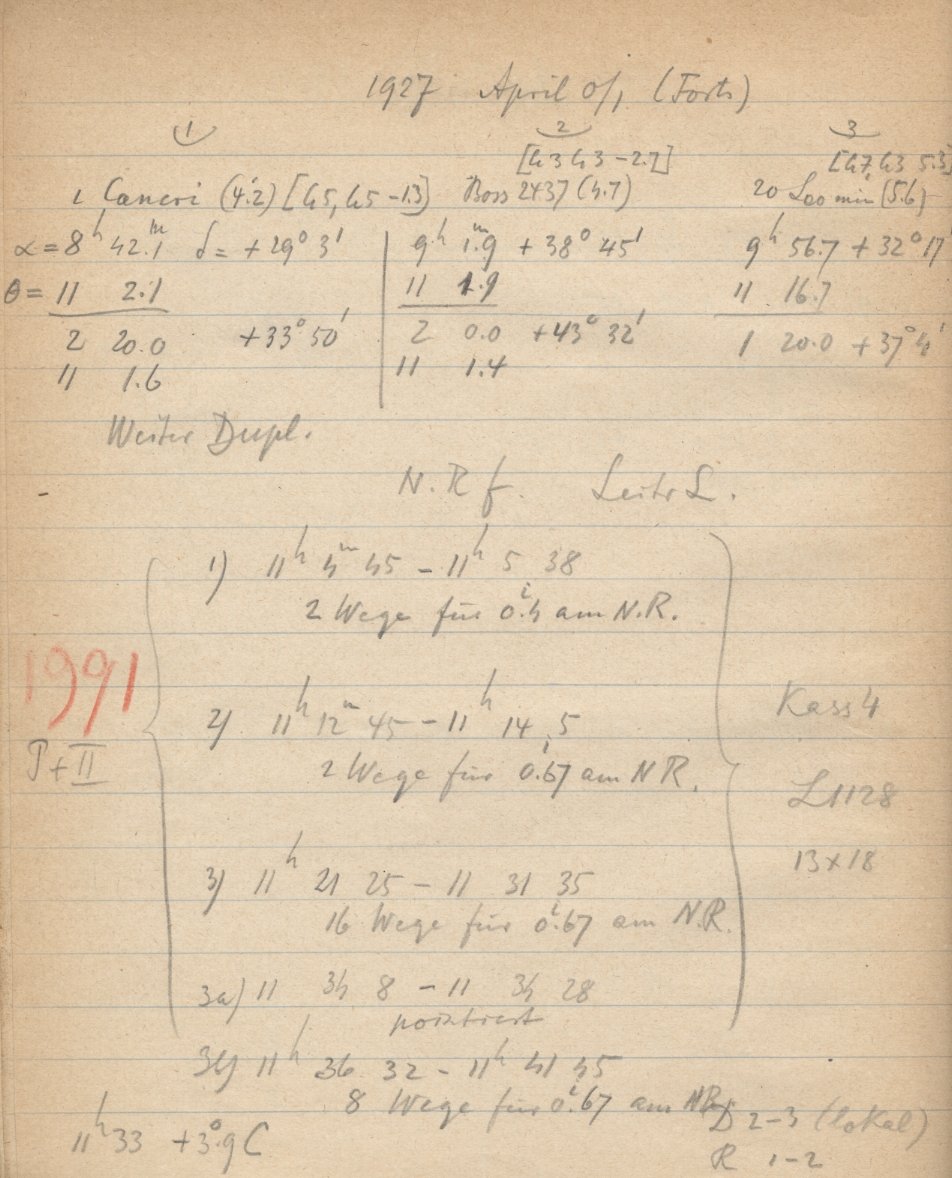 1927 April 0/1 (Forts)
1 2 3
[43 43 -2.7] [47, 43 5.3]
ι Cancri (4.2) [45, 45 -1.3] Boss 2437 (4.7) 20 Leo min (5.6)
α = 8h 42.1m δ = +29° 3' 9h 1.9m + 38° 45' 9h 56.7 + 32° 17'
θ = 11 2.1 11 1.9 11 16.7
2 20.0 +33° 50' 2 0.0 +43° 32' 1 20.0 +37° 4'
11 1.6 11 1.4
Weiter Dupl.
N.R f. Leitr L.
1) 11h 4m 45 - 11h 5 38
2 Wege für 0.4 am N.R.
1991
2) 11h 12m 45 - 11h 14 5
Kass 4
P + II
2 Wege für 0.67 am N R.
L 1128
13 x 18
3) 11h 21 25 - 11 31 35
16 Wege für 0.67 am N.R.
3a) 11 34 8 - 11 34 28
pointiert
3b) 11h 36 32 - 11h 41 45
8 Wege für 0.67 am NR.
11h 33 +3.9° C
D 2-3 (lokal)
R 1-2